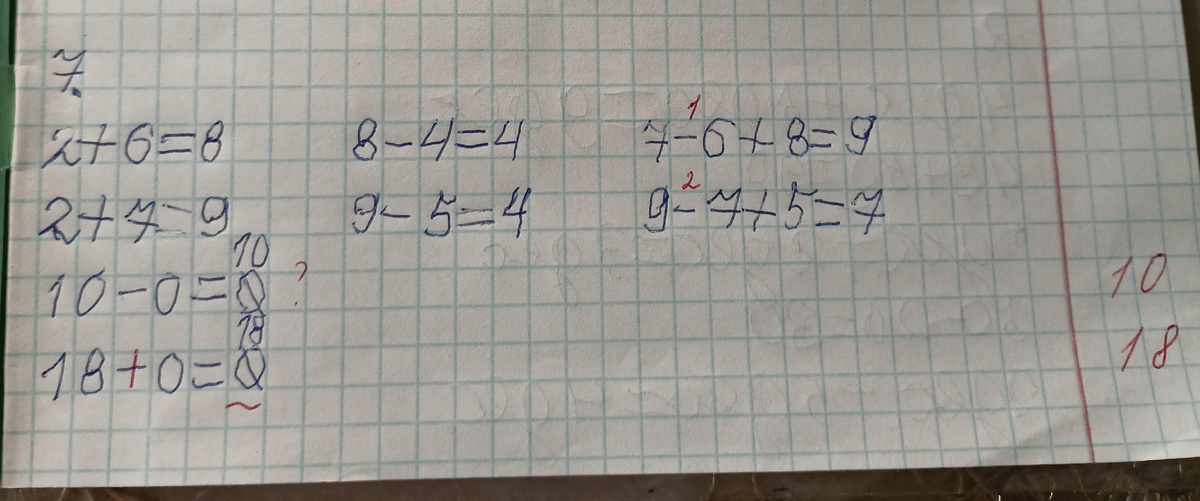 7.
1
2+6=8 8-4=4 7-6+8=9
2
2+7=9 9-5=4 9-7+5=7
10
10-0=0 ? 10
18
18+0=0 18